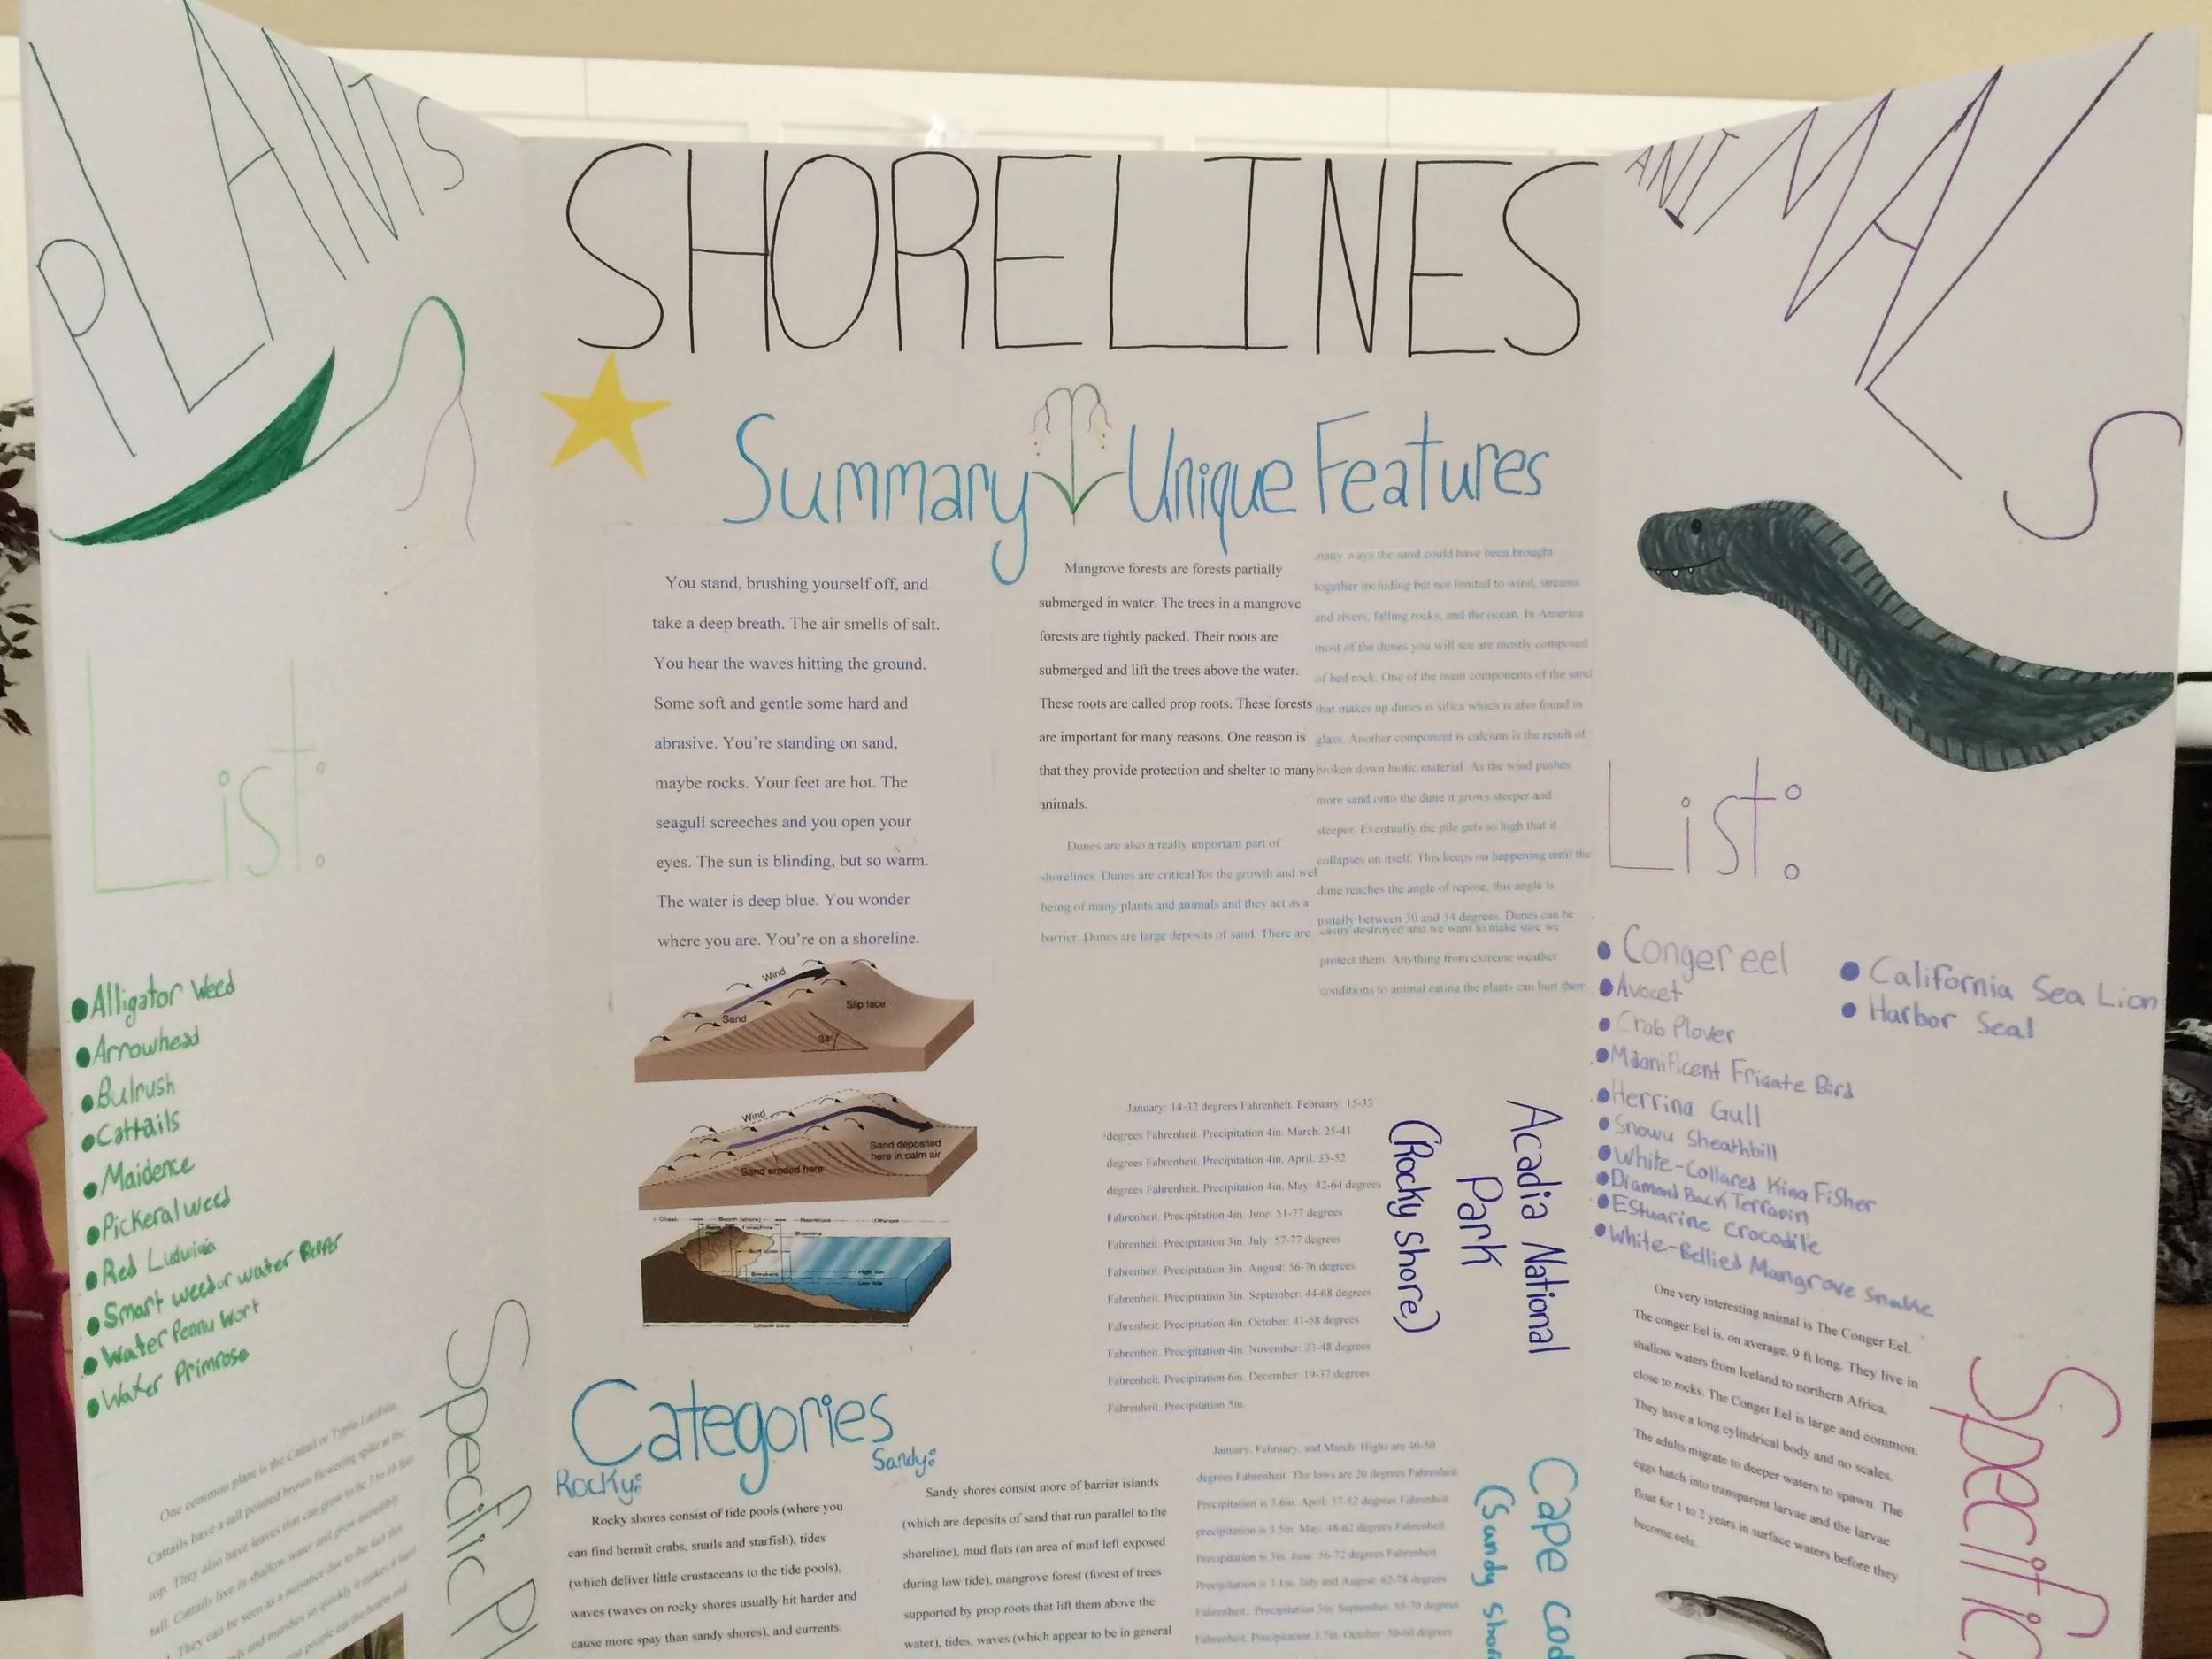 PLANTS
List:
Alligator Weed
Arrowhead
Bulrush
Cattails
Maidence
Pickeralweed
Red Ludwigia
Smart weed or water Pepper
Water Penny Wort
Water Primrose
One common plant is the Cattail or Typha Latifolia.
Cattails have a tall pointed brown flowering spike at the
top. They also have leaves that can grow to be 3 to 10 feet
tall. Cattails live in shallow water and grow incredibly
They can be seen as a nuisance due to the fact this
and marshes so quickly it makes it hard
people eat the hearts and
Specific Pl
SHORELINES
Summary
You stand, brushing yourself off, and
take a deep breath. The air smells of salt.
You hear the waves hitting the ground.
Some soft and gentle some hard and
abrasive. You're standing on sand,
maybe rocks. Your feet are hot. The
seagull screeches and you open your
eyes. The sun is blinding, but so warm.
The water is deep blue. You wonder
where you are. You're on a shoreline.
Wind
Sand
Slip face
34°
Wind
Sand eroded here
Sand deposited
here in calm air
Unique Features
Mangrove forests are forests partially
submerged in water. The trees in a mangrove
forests are tightly packed. Their roots are
submerged and lift the trees above the water.
These roots are called prop roots. These forests
are important for many reasons. One reason is
that they provide protection and shelter to many
animals.
Dunes are also a really important part of
shorelines. Dunes are critical for the growth and wel
being of many plants and animals and they act as a
barrier. Dunes are large deposits of sand. There are
many ways the sand could have been brought
together including but not limited to wind, streams
and rivers, falling rocks, and the ocean. In America
most of the dunes you will see are mostly composed
of bed rock. One of the main components of the sand
that makes up dunes is silica which is also found in
glass. Another component is calcium is the result of
broken down biotic material. As the wind pushes
more sand onto the dune it grows steeper and
steeper. Eventually the pile gets so high that it
collapses on itself. This keeps on happening until the
dune reaches the angle of repose, this angle is
usually between 30 and 34 degrees. Dunes can be
easily destroyed and we want to make sure we
protect them. Anything from extreme weather
conditions to animal eating the plants can hurt them
January: 14-32 degrees Fahrenheit. February: 15-33
degrees Fahrenheit. Precipitation 4in. March: 25-41
degrees Fahrenheit. Precipitation 4in. April: 33-52
degrees Fahrenheit. Precipitation 4in. May: 42-64 degrees
Fahrenheit. Precipitation 4in. June: 51-77 degrees
Fahrenheit. Precipitation 3in. July: 57-77 degrees
Fahrenheit. Precipitation 3in. August: 56-76 degrees
Fahrenheit. Precipitation 3in. September: 44-68 degrees
Fahrenheit. Precipitation 4in. October: 41-58 degrees
Fahrenheit. Precipitation 4in. November: 33-48 degrees
Fahrenheit. Precipitation 6in. December: 19-37 degrees
Fahrenheit. Precipitation 5in.
Acadia National
Park
(Rocky shore)
Categories
Rocky:
Rocky shores consist of tide pools (where you
can find hermit crabs, snails and starfish), tides
(which deliver little crustaceans to the tide pools),
waves (waves on rocky shores usually hit harder and
cause more spay than sandy shores), and currents.
Sandy:
Sandy shores consist more of barrier islands
(which are deposits of sand that run parallel to the
shoreline), mud flats (an area of mud left exposed
during low tide), mangrove forest (forest of trees
supported by prop roots that lift them above the
water), tides, waves (which appear to be in general
January, February, and March: Highs are 40-50
degrees Fahrenheit. The lows are 20 degrees Fahrenheit
Precipitation is 3.6in. April: 37-52 degrees Fahrenheit
precipitation is 3.5in. May: 48-62 degrees Fahrenheit.
Precipitation is 3in. June: 56-72 degrees Fahrenheit
Precipitation is 3.1in. July and August: 62-78 degrees
Fahrenheit. Precipitation 3in. September: 55-70 degrees
Fahrenheit. Precipitation 3.7in. October: 50-60 degrees
Cape Cod
(Sandy Shor
ANIMALS
List:
Conger eel
Avocet
Crab Plover
Magnificent Frigate Bird
Herring Gull
Snowy Sheathbill
White-Collared King Fisher
Diamond Back Terrapin
Estuarine Crocodile
White-Bellied Mangrove Snake
California Sea Lion
Harbor Seal
One very interesting animal is The Conger Eel.
The conger Eel is, on average, 9 ft long. They live in
shallow waters from Iceland to northern Africa,
close to rocks. The Conger Eel is large and common.
They have a long cylindrical body and no scales.
The adults migrate to deeper waters to spawn. The
eggs hatch into transparent larvae and the larvae
float for 1 to 2 years in surface waters before they
become eels.
Specific